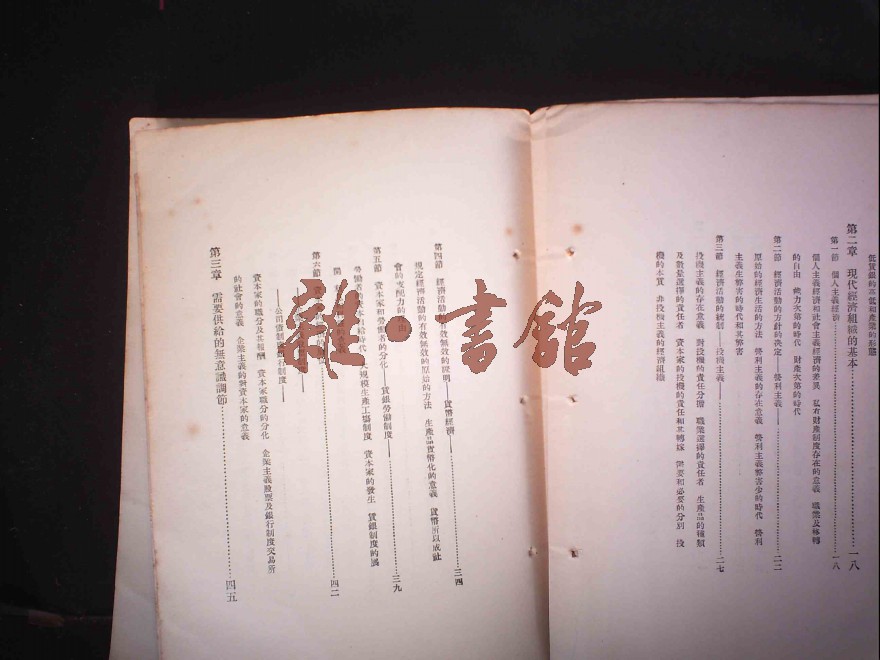 低賃銀的不但和產業的形態
第二章 現代經濟組織的基本…………一八
第一節 個人主義經濟…………一八
個人主義經濟和社會主義經濟的差異 私有財產制度存在的意義 職業及移轉
的自由 武力次第的時代 財產次第的時代
第二節 經濟活動的方針的決定——營利主義——…………二二
原始的經濟生活的方法 營利主義的存在意義 營利主義弊害少的時代 營利
主義生弊害的時代和其弊害
第三節 經濟活動的統制——投機主義——…………二七
投機主義的存在意義 對投機的責任分擔 職業選擇的責任者 生產品的種類
及數量選擇的責任者 資本家的投機的責任和其轉嫁 需要和必要的分別 投
機的本質 非投機主義的經濟組織
第四節 經濟活動的有效無效的證明——貨幣經濟——…………三四
規定經濟活動的有效無效的原始的方法 生產品貨幣化的意義 貨幣所以成社
會的支配力的理由
第五節 資本家和勞働者的分化——賃銀勞働制度——…………三九
勞働者的資本自給時代 大規模生產工場制度 資本家的發生 賃銀制度的
第六節 資…………四二
——公司
資本家的職分及其報酬 資本家職分的分化 企業主義股票及銀行制度交易所
的社會的意義 企業主義的對資本家的意義
第三章 需要供給的無意識調節…………四五
雜·書館